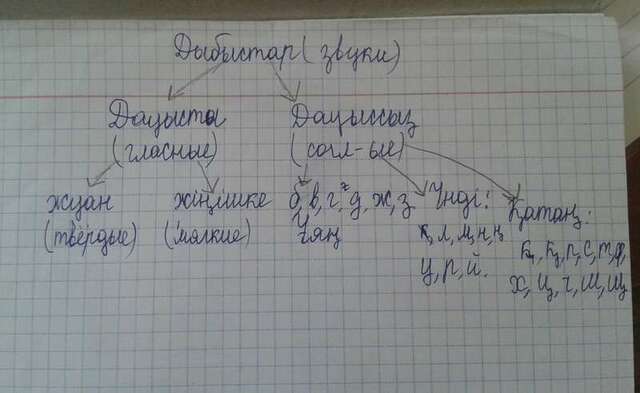 Дыбыстар (звуки)
Дауысты
(гласные)
Дауыссыз
(согл-ые)
жуан
(твёрдые)
жіңішке
(мягкие)
б, в, г, ғ, д, ж, з
Ұяң
Үнді:
л, м, н, ң
у, р, й.
Қатаң:
к, қ, п, с, т, ф,
х, ц, ч, ш, щ